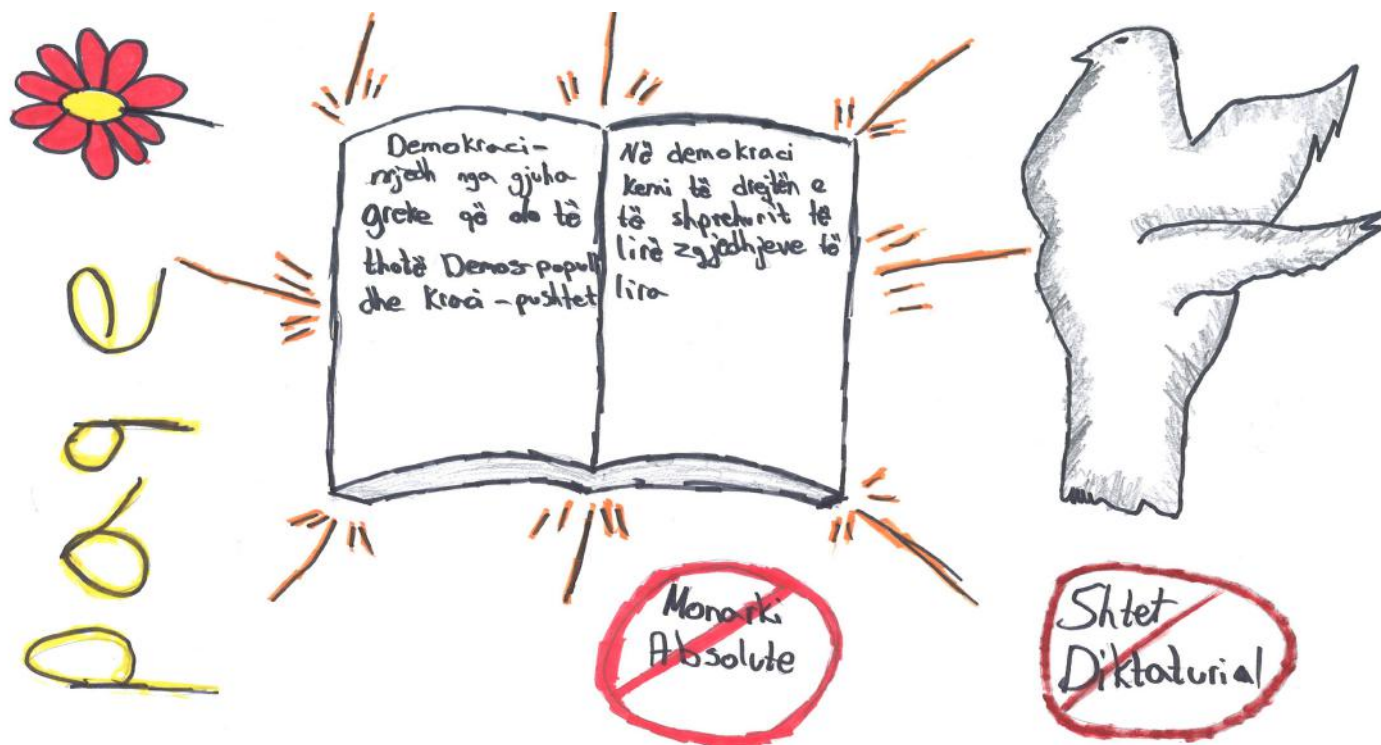 paqe
Demokraci-
rrjedh nga gjuha
greke që do të
thotë Demos-popull
dhe Kraci-pushtet
Në demokraci
kemi të drejtën e
të shprehurit të
lirë zgjedhjeve të
lira
Monarki
Absolute
Shtet
Diktaturial